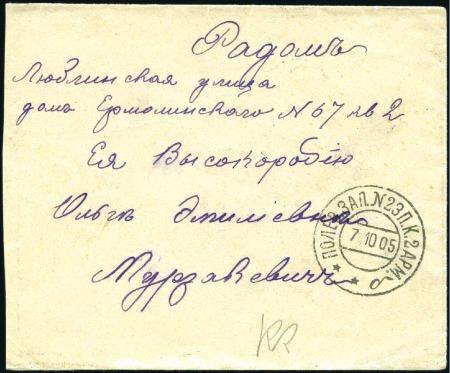 Радомъ
Люблинская улица
домъ Ермолинскаго N 67 кв 2
Ея Высокородію
Ольгѣ Эмиліевнѣ
Мурзакевичъ
ПОЛЕВ. ЗАП. N 23 П.К. 2 АРМ.
7 10 05